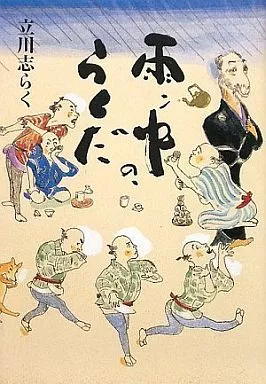 雨ン中の、
らくだ
立川志らく